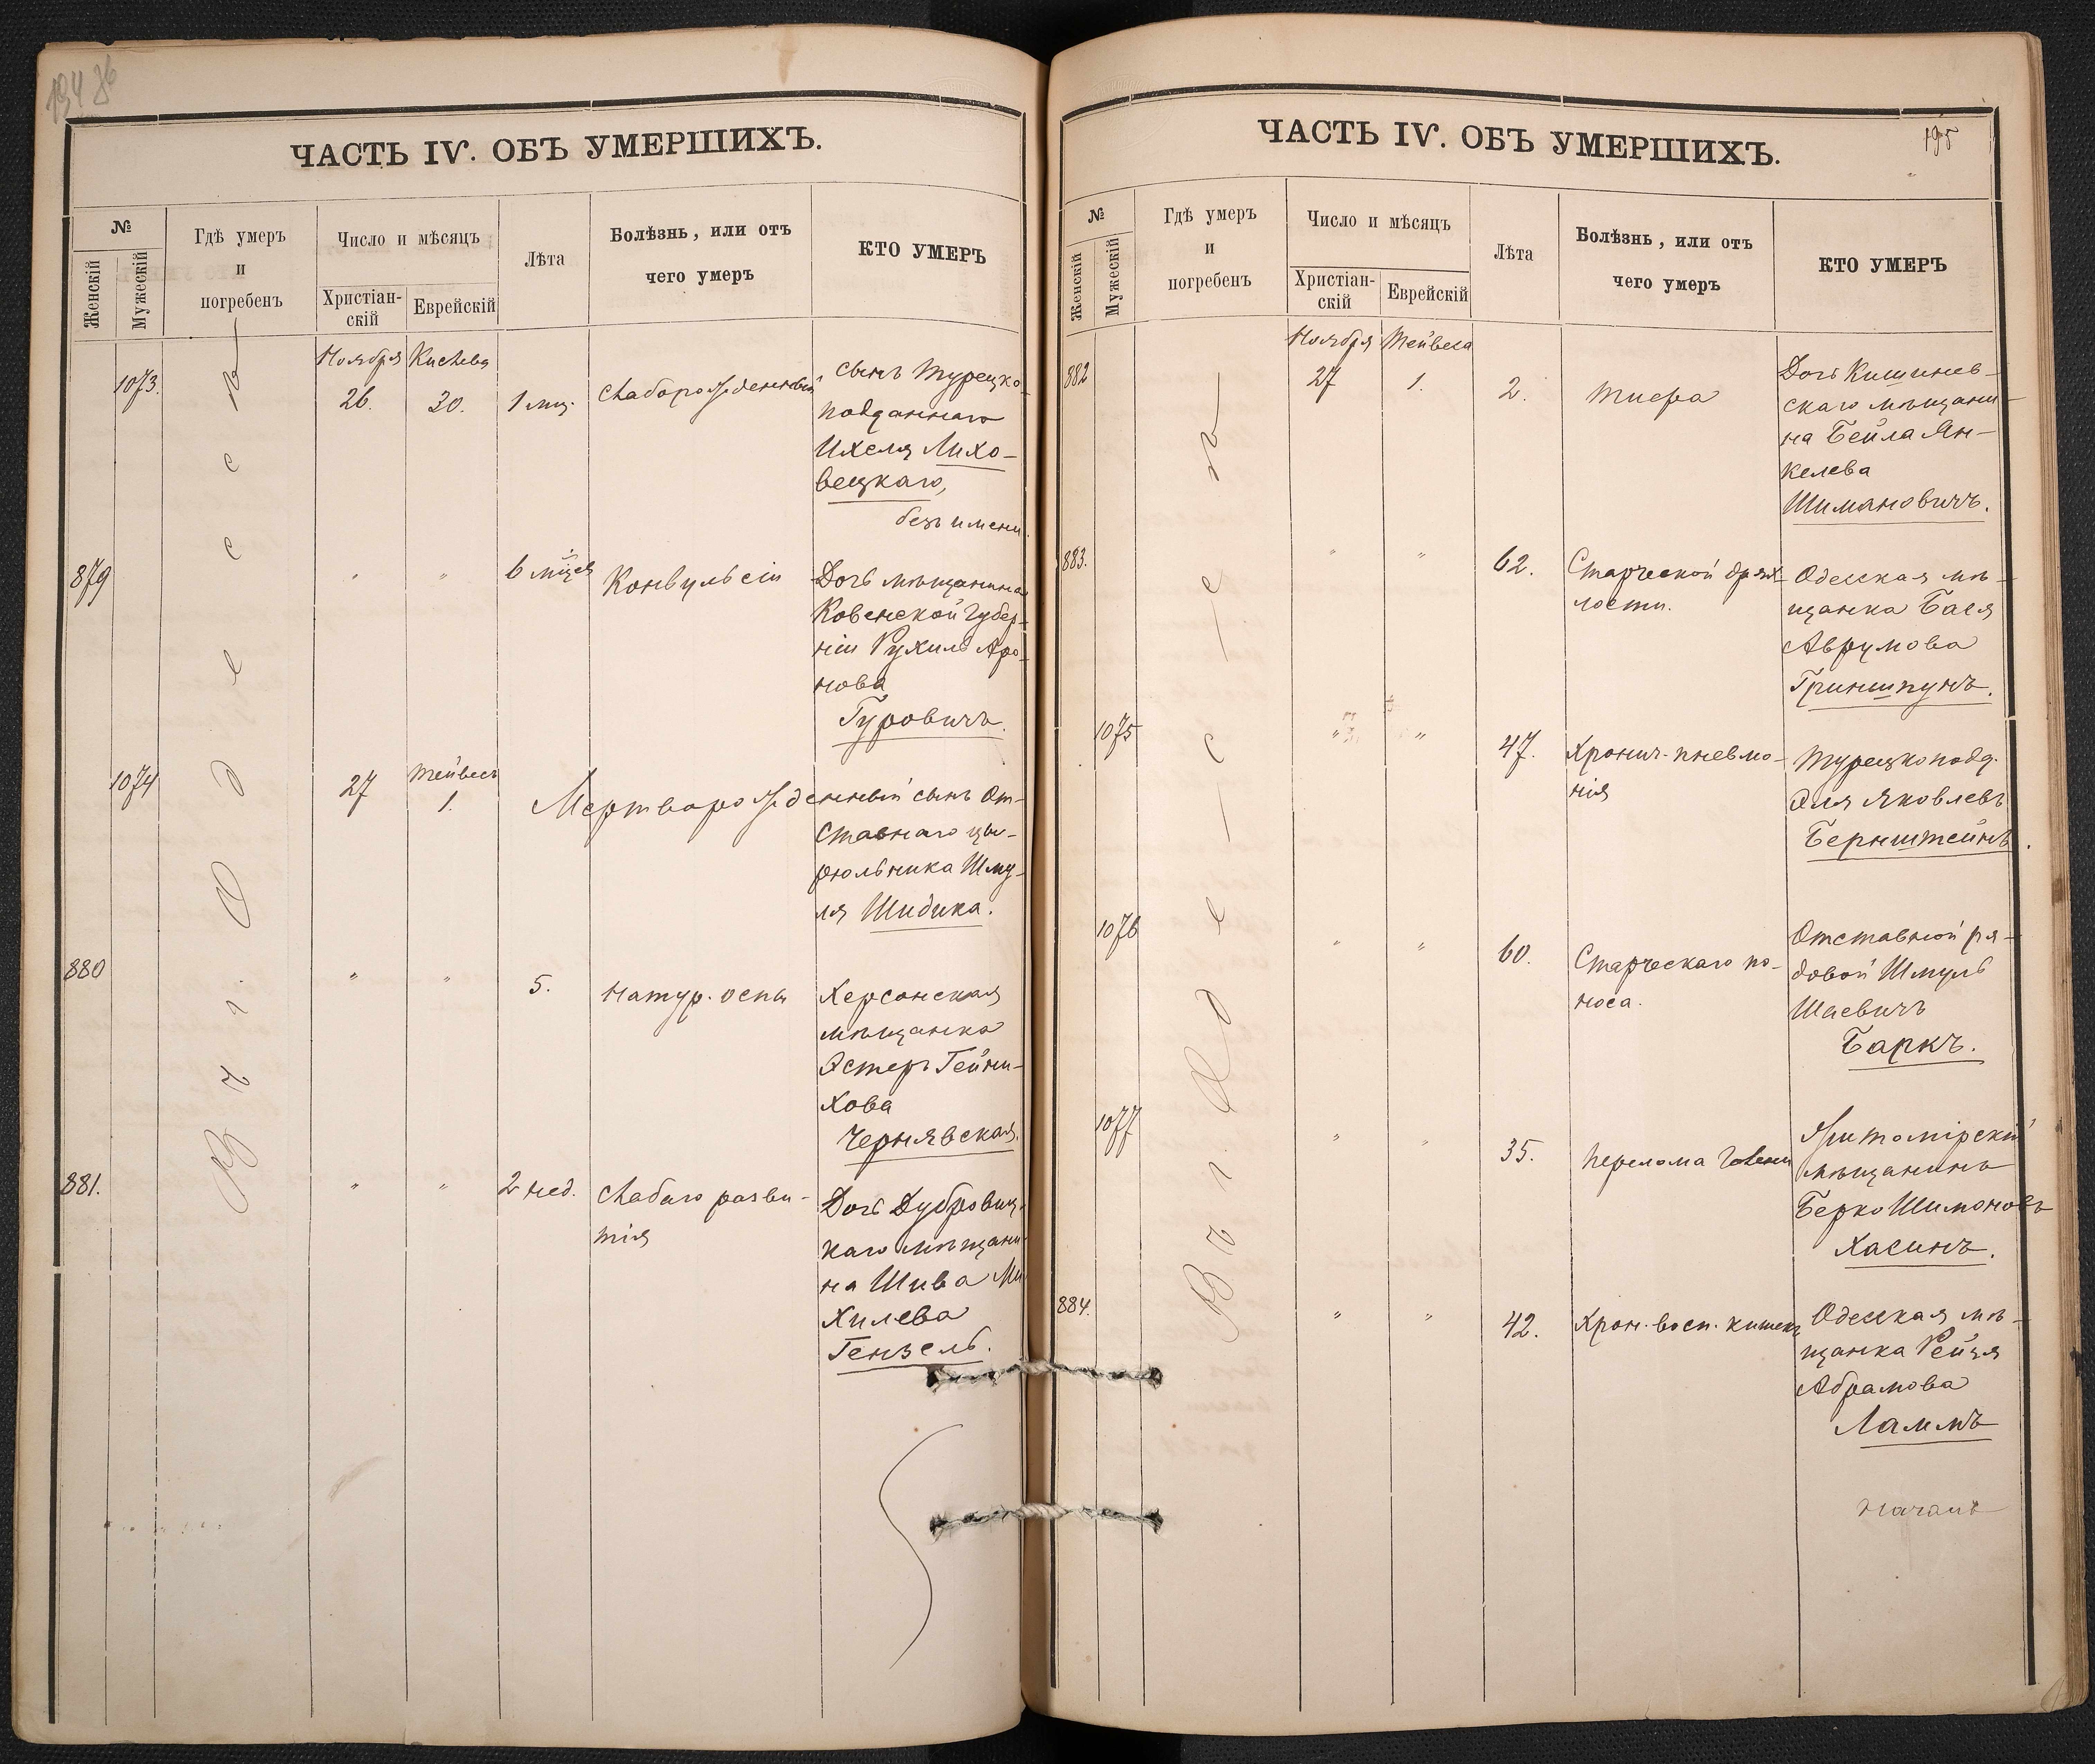 194 об
ЧАСТЬ IV. ОБЪ УМЕРШИХЪ.
№
Женскій
Мужескій
Гдѣ умеръ
и
погребенъ
Число и мѣсяцъ
Христіан-
скій
Еврейскій
Лѣта
Болѣзнь, или отъ
чего умеръ
КТО УМЕРЪ
В ъ г. О д е с с ѣ
Ноября Кислева
1073. 26. 30. 1 мц. Слаборожденный сынъ Турецко
подданнаго
Ихеля Лихо-
вецкаго,
безъ имени.
879 " " 6 мѣцев Конвульсіи Дочь мѣщанина
Ковенской губер-
ніи Рухиль Аро-
нова
Гуровичъ.
1074 27 Тейвесъ
1. Мертворожденный сынъ От-
ставнаго цы-
рюльника Шму-
ля Шидика.
880 " " 5. Натур. оспы Херсонская
мѣщанка
Эстеръ Гейни-
хова
Чернявская.
881. " " 2 нед. Слабаго разви-
тія
Дочь Дубровиц-
каго мѣщани-
на Шива Ми
хилева
Гензель.
ЧАСТЬ IV. ОБЪ УМЕРШИХЪ.
195
№
Женскій
Мужескій
Гдѣ умеръ
и
погребенъ
Число и мѣсяцъ
Христіан-
скій
Еврейскій
Лѣта
Болѣзнь, или отъ
чего умеръ
КТО УМЕРЪ
В ъ г. О д е с с ѣ
Ноября Тейвеса
882 27 1. 2. Тифа Дочь Кишинев-
скаго мѣщани-
на Бейла Ян-
келева
Шимановичъ.
883. " " 62. Старческой дрях-
лости.
Одесская мѣ-
щанка Бася
Аврумова
Гриншпунъ.
1075 " " 47. Хронич. пневмо-
нія
Турецкопод.
Эля Яковлевъ
Бернштейнъ.
1076 " " 60. Старческаго по-
носа.
Отставной ря-
довой Шмуль
Шаевичъ
Баркъ.
1077 " " 35. Перелома голени Житомірскій
мѣщанинъ
Берко Шимоновъ
Хасинъ.
884. " " 42. Хрон. восп. кишекъ Одесская мѣ-
щанка Рейзя
Абрамова
Ламмъ